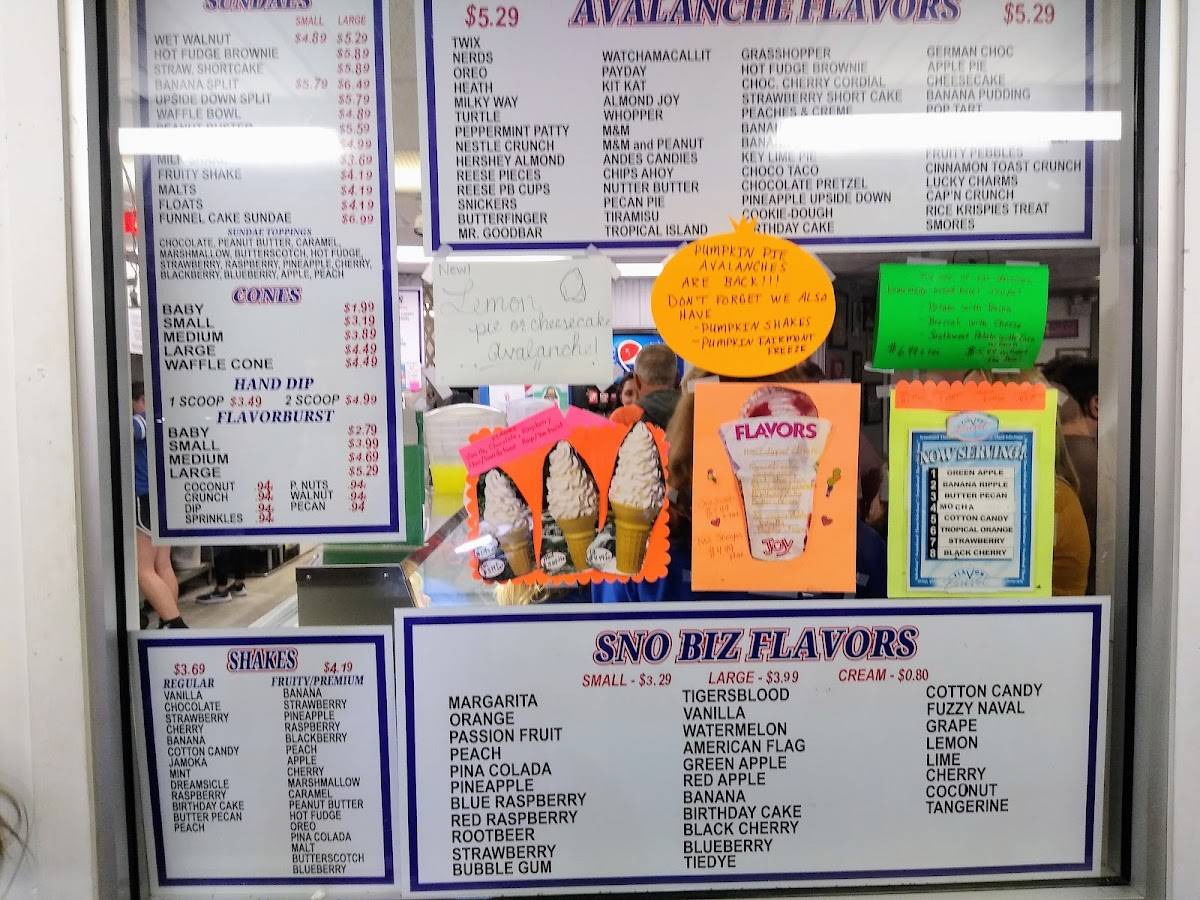 SUNDAES
SMALL LARGE
WET WALNUT $4.89 $5.29
HOT FUDGE BROWNIE $5.89
STRAW. SHORTCAKE $5.89
BANANA SPLIT $5.79 $6.49
UPSIDE DOWN SPLIT $5.79
WAFFLE BOWL $4.89
PEANUT BUSTER $5.59
$4.99
MILK SHAKE $3.69
FRUITY SHAKE $4.19
MALTS $4.19
FLOATS $4.19
FUNNEL CAKE SUNDAE $6.99
SUNDAE TOPPINGS
CHOCOLATE, PEANUT BUTTER, CARAMEL,
MARSHMALLOW, BUTTERSCOTCH, HOT FUDGE,
STRAWBERRY, RASPBERRY, PINEAPPLE, CHERRY,
BLACKBERRY, BLUEBERRY, APPLE, PEACH
CONES
BABY $1.99
SMALL $3.19
MEDIUM $3.89
LARGE $4.49
WAFFLE CONE $4.49
HAND DIP
1 SCOOP $3.49 2 SCOOP $4.99
FLAVORBURST
BABY $2.79
SMALL $3.99
MEDIUM $4.69
LARGE $5.29
COCONUT .94 P. NUTS .94
CRUNCH .94 WALNUT .94
DIP .94 PECAN .94
SPRINKLES .94
$5.29 AVALANCHE FLAVORS $5.29
TWIX
NERDS
OREO
HEATH
MILKY WAY
TURTLE
PEPPERMINT PATTY
NESTLE CRUNCH
HERSHEY ALMOND
REESE PIECES
REESE PB CUPS
SNICKERS
BUTTERFINGER
MR. GOODBAR
WATCHAMACALLIT
PAYDAY
KIT KAT
ALMOND JOY
WHOPPER
M&M
M&M and PEANUT
ANDES CANDIES
CHIPS AHOY
NUTTER BUTTER
PECAN PIE
TIRAMISU
TROPICAL ISLAND
GRASSHOPPER
HOT FUDGE BROWNIE
CHOC. CHERRY CORDIAL
STRAWBERRY SHORT CAKE
PEACHES & CREME
KEY LIME PIE
CHOCO TACO
CHOCOLATE PRETZEL
PINEAPPLE UPSIDE DOWN
COOKIE-DOUGH
BIRTHDAY CAKE
GERMAN CHOC
APPLE PIE
CHEESECAKE
BANANA PUDDING
POP TART
FRUITY PEBBLES
CINNAMON TOAST CRUNCH
LUCKY CHARMS
CAP'N CRUNCH
RICE KRISPIES TREAT
SMORES
New!
Lemon
pie or cheesecake
avalanche!
PUMPKIN PIE
AVALANCHES
ARE BACK!!!
DON'T FORGET WE ALSO
HAVE
-PUMPKIN SHAKES
-PUMPKIN FAIRMONT
FREEZE
Broccoli with Cheese
FLAVORS
Joy
NOW SERVING!
1 GREEN APPLE
2 BANANA RIPPLE
3 BUTTER PECAN
4 MOCHA
5 COTTON CANDY
6 TROPICAL ORANGE
7 STRAWBERRY
8 BLACK CHERRY
SHAKES
$3.69 $4.19
REGULAR FRUITY/PREMIUM
VANILLA
CHOCOLATE
STRAWBERRY
CHERRY
BANANA
COTTON CANDY
JAMOKA
MINT
DREAMSICLE
RASPBERRY
BIRTHDAY CAKE
BUTTER PECAN
PEACH
BANANA
STRAWBERRY
PINEAPPLE
RASPBERRY
BLACKBERRY
PEACH
APPLE
CHERRY
MARSHMALLOW
CARAMEL
PEANUT BUTTER
HOT FUDGE
OREO
PINA COLADA
MALT
BUTTERSCOTCH
BLUEBERRY
SNO BIZ FLAVORS
SMALL - $3.29 LARGE - $3.99 CREAM - $0.80
MARGARITA
ORANGE
PASSION FRUIT
PEACH
PINA COLADA
PINEAPPLE
BLUE RASPBERRY
RED RASPBERRY
ROOTBEER
STRAWBERRY
BUBBLE GUM
TIGERSBLOOD
VANILLA
WATERMELON
AMERICAN FLAG
GREEN APPLE
RED APPLE
BANANA
BIRTHDAY CAKE
BLACK CHERRY
BLUEBERRY
TIEDYE
COTTON CANDY
FUZZY NAVAL
GRAPE
LEMON
LIME
CHERRY
COCONUT
TANGERINE